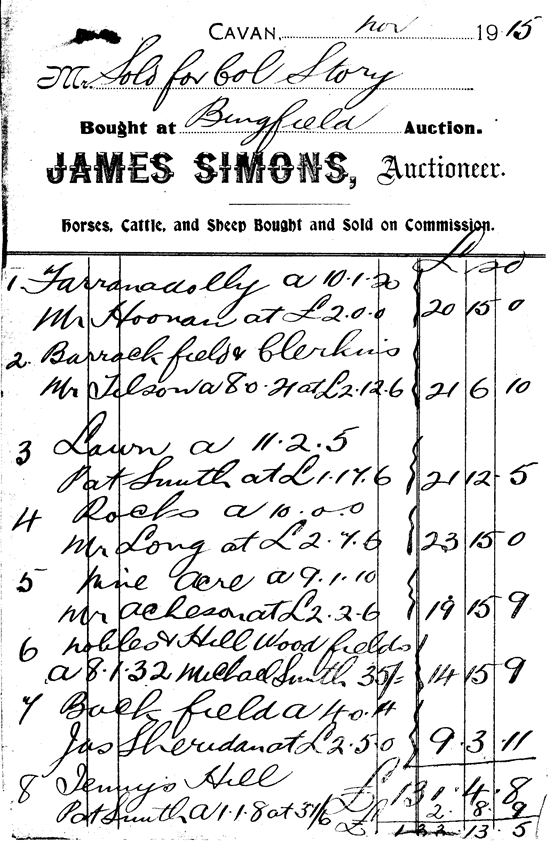 CAVAN, Nov 1915
Mr. Sold for Col Story
Bought at Bingfield Auction.
JAMES SIMONS, Auctioneer.
Horses, Cattle, and Sheep Bought and Sold on Commission.
£ s d
1 Farranadolly a 10.1.20
Mr Hoonan at £2.0.0 20 15 0
2. Barrack field & Clerkins
Mr Tilson a 8.0.21 at £2.12.6 21 6 10
3 Lawn a 11.2.5
Pat Smith at £1.17.6 21 12.5
4 Rocks a 10.0.0
Mr Long at £2.7.6 23 15 0
5 Nine Acre a 9.1.10
Mr Acheson at £2.2.6 19 15 9
6 Nobles & Hill Wood fields
a 8.1.32 Michael Smith 35/= 14 15 9
7 Back field a 4.0.14
Jas Sheridan at £2.5.0 9.3.11
8 Jennys Hill £131.4.8
Pat Smith a 1.1.8 at 31/6 2.8.9
£133 13.5